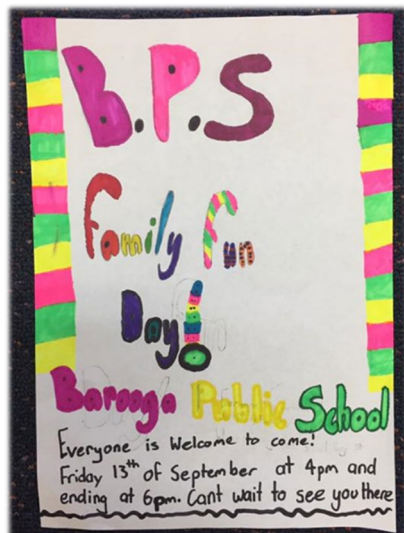 B.P.S
Family Fun
Day!
Barooga Public School
Everyone is Welcome to come!
Friday 13th of September at 4pm and
ending at 6pm. Cant wait to see you there